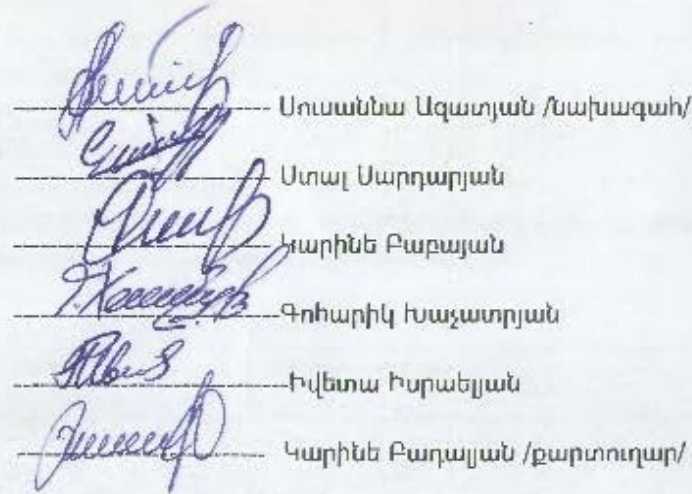 Սուսաննա Ազատյան /նախագահ/
Ստալ Սարդարյան
Կարինե Բաբայան
Գոհարիկ Խաչատրյան
Իվետա Իսրաելյան
Կարինե Բադալյան /քարտուղար/